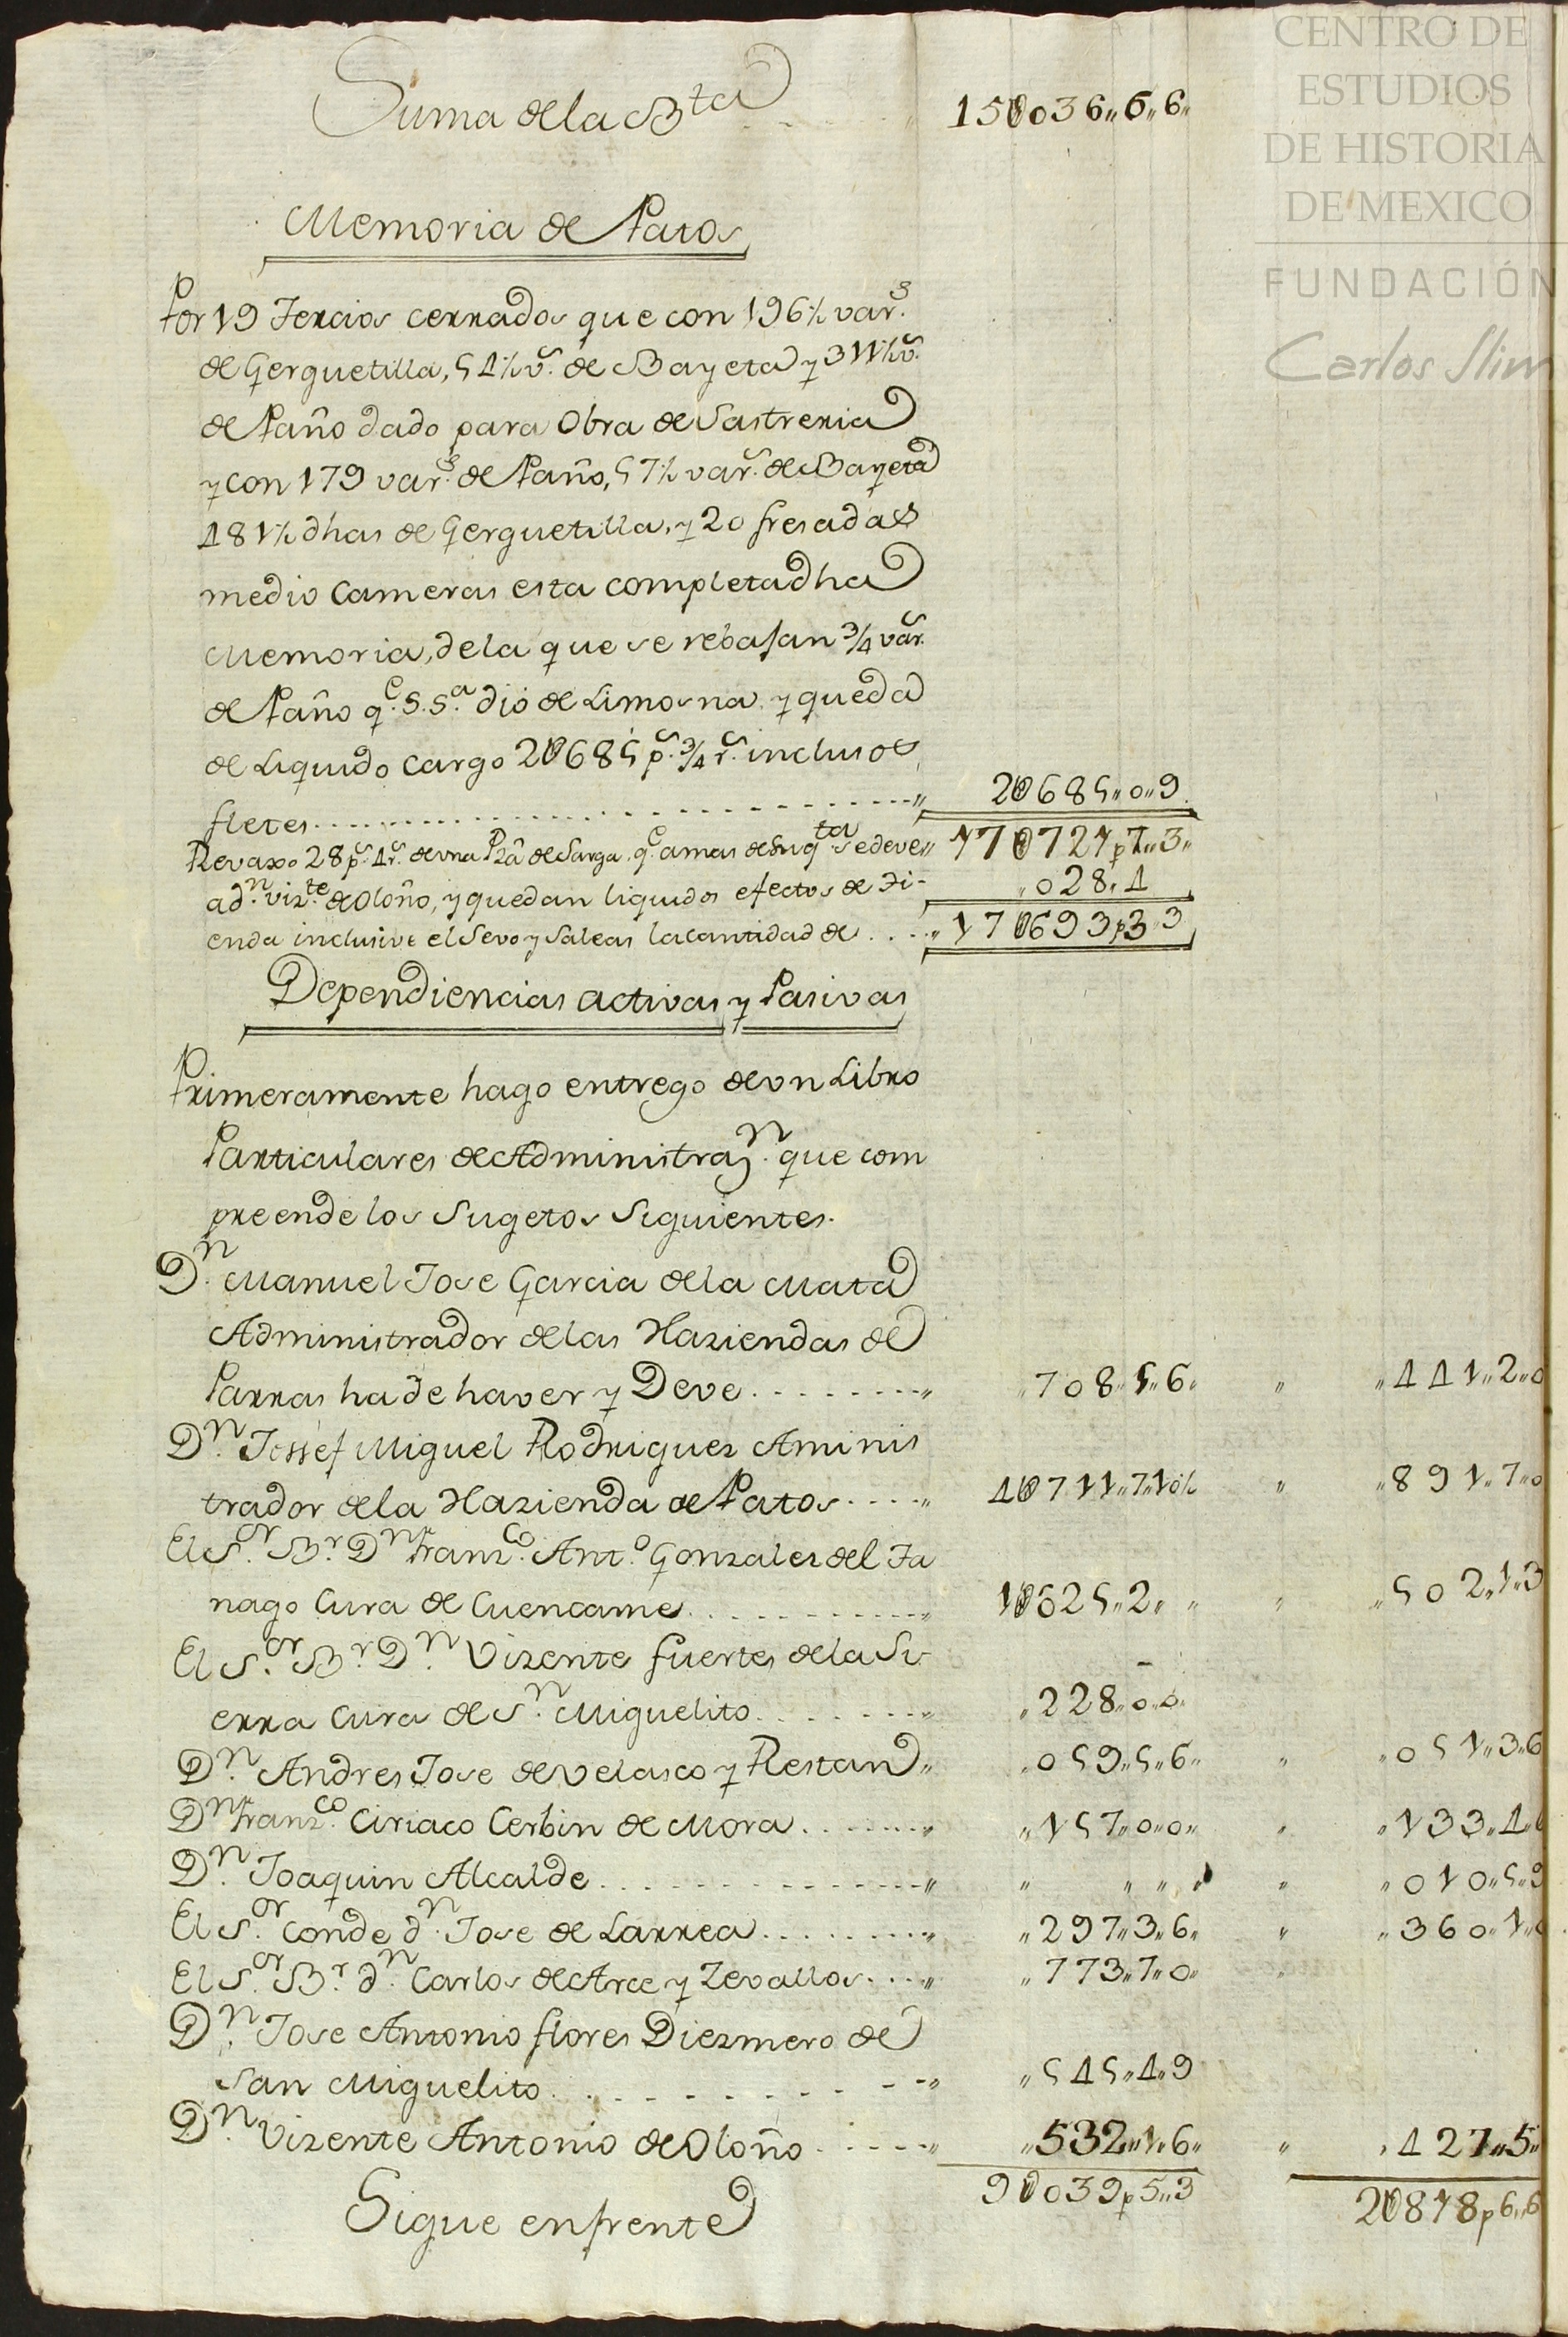 CENTRO DE
ESTUDIOS
DE HISTORIA
DE MEXICO
FUNDACIÓN
Carlos Slim
Suma de la B.ta 15U036,,6,,6,,
Memoria de Patos
Por 19 Tercios cerrados que con 196½ var.s
de Gerguetilla, 54½ v.s de Bayeta y 311½ v.s
de Paño dado para Obra de Sastreria
y con 179 var.s de Paño, 57½ var.s de Bayeta
181½ dhas de Gerguetilla, y 20 fresadas
medio Cameras esta completa dha
Memoria, de la que se rebajan ¾ var.s
de Paño q.e S.S.a dio de Limosna y queda
de Liquido cargo 2U685 p.s ¾ r.s inclusos
fletes 2U685,,0,,9
Revaxo 28 p.s 4 r.s de una Pza de Sarga q.e amas de su q.ta se deve,, 17U721p7,,3,,
a d.n Viz.te de Oloño, y quedan liquidos efectos de Ti- ,,028,,4
enda inclusive el Sevo y Saleas la cantidad de ,, 17U693p3,,3
Dependiencias activas y Pasivas
Primeramente hago entrego de un Libro
Particulares de Administraz.n que com
preende los Sugetos Siguientes.
D.n Manuel Jose Garcia de la Mata
Administrador de las Haziendas de
Parras ha de haver y Deve ,, ,,708,,5,,6,, ,, ,,441,,2,,0
D.n Jossef Miguel Rodriguez Aminis
trador de la Hazienda de Patos ,, 4U711,,7,,10½ ,, ,,891,,7,,0
El S.or B.r D.n Franz.co Ant.o Gonzales del Ta
nago Cura de Cuencame ,, 1U625,,2,, ,, ,, ,,502,,1,,3
El S.or B.r D.n Vizente fuertes de la Si-
erra Cura de S.n Miguelito ,, ,,228,,0,,0,,
D.n Andres Jose de Velasco y Restan ,, ,,059,,5,,6,, ,, ,,051,,3,,6
D.n Franz.co Ciriaco Cerbin de Mora ,, ,,157,,0,,0,, ,, ,,133,,4,,6
D.n Joaquin Alcalde ,, ,, ,, ,, ,, ,, ,,010,,5,,9
El S.or Conde d.n Jose de Larrea ,, ,,297,,3,,6,, ,, ,,360,,1,,
El S.or B.r d.n Carlos de Arce y Zevallos ,, ,,773,,7,,0,,
D.n Jose Antonio flores Diezmero de
San Miguelito ,, ,,545,,4,,9
D.n Vizente Antonio de Oloño ,, ,,532,,1,,6,, ,, ,,427,,5,,
Sigue enfrente 9U039p5,,3 2U818p6,,6